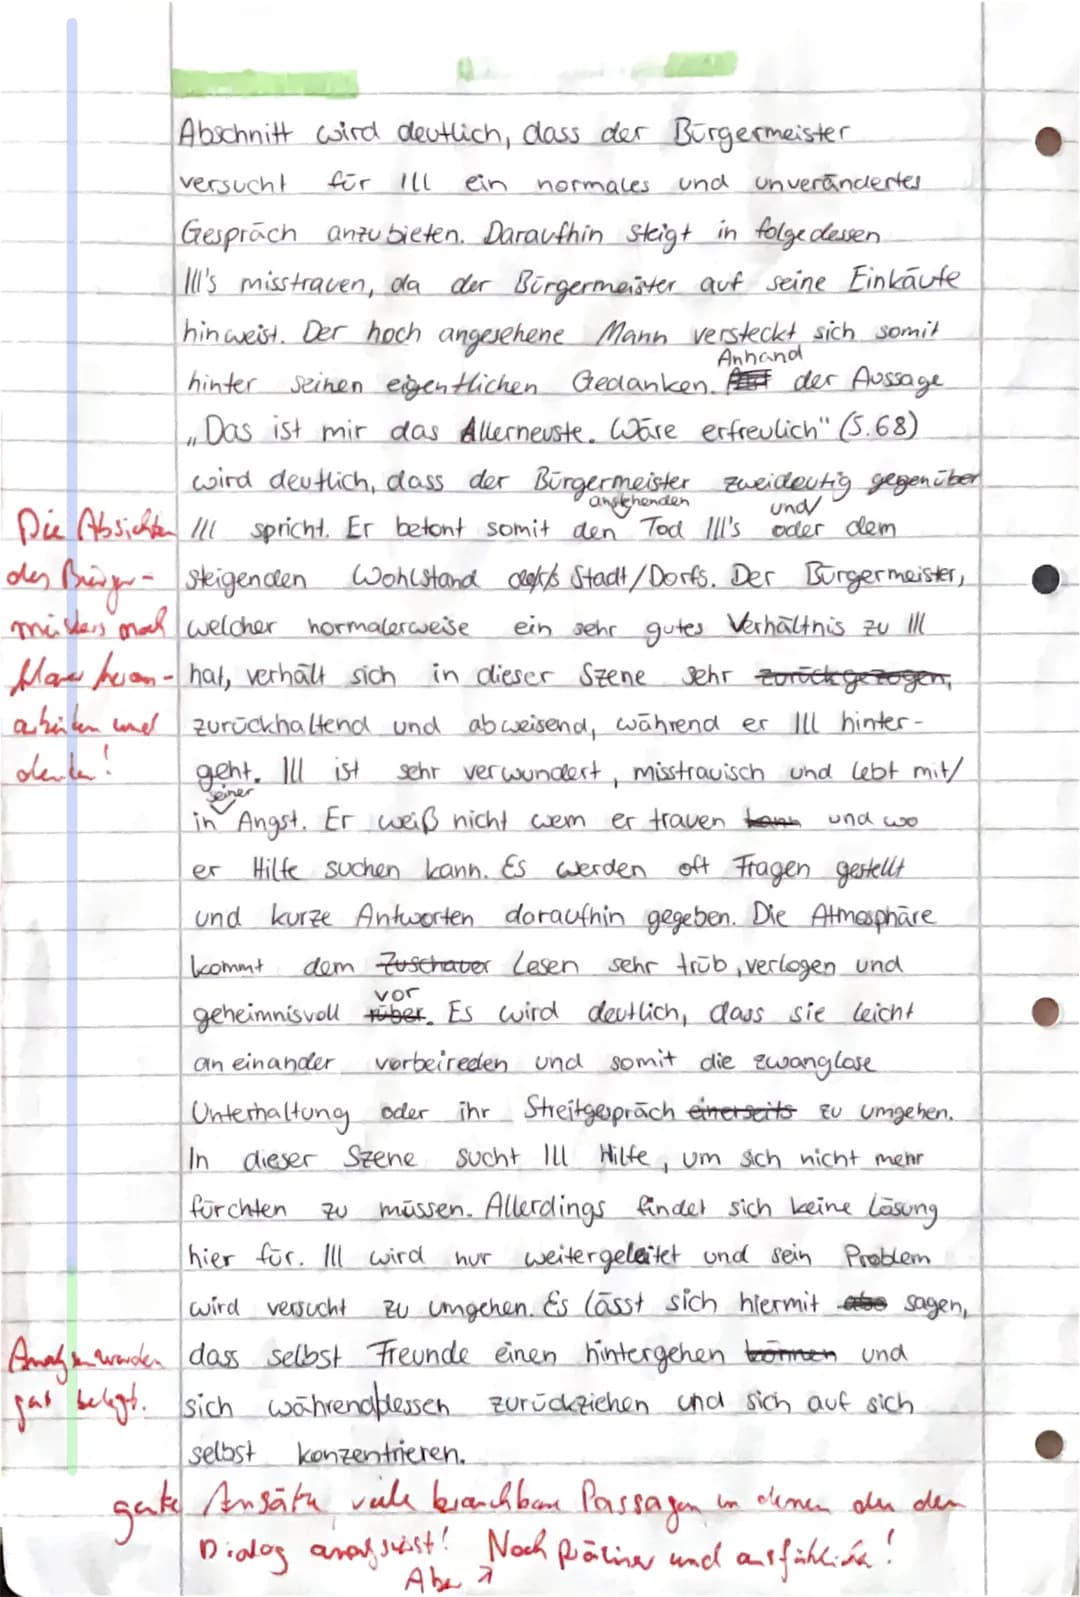 Abschnitt wird deutlich, dass der Bürgermeister
versucht für Ill ein normales und unverändertes
Gespräch anzubieten. Daraufhin steigt in folgedessen
Ill's misstrauen, da der Bürgermeister auf seine Einkäufe
hinweist. Der hoch angesehene Mann versteckt sich somit
Anhand
hinter seinen eigentlichen Gedanken. der Aussage
„Das ist mir das Allerneuste. Wäre erfreulich" (S.68)
wird deutlich, dass der Bürgermeister zweideutig gegenüber
anstehenden und
Ill spricht. Er betont somit den Tod Ill's oder dem
steigenden Wohlstand der Stadt/Dorfs. Der Bürgermeister,
welcher normalerweise ein sehr gutes Verhältnis zu Ill
hat, verhält sich in dieser Szene sehr zurückgezogen,
zurückhaltend und abweisend, während er Ill hinter-
geht. Ill ist sehr verwundert, misstrauisch und lebt mit/
seiner
in Angst. Er weiß nicht wem er trauen kann und wo
er Hilfe suchen kann. Es werden oft Fragen gestellt
und kurze Antworten daraufhin gegeben. Die Atmosphäre
kommt dem Zuschauer Lesen sehr trüb, verlogen und
vor
geheimnisvoll rüber. Es wird deutlich, dass sie leicht
an einander vorbeireden und somit die zwanglose
Unterhaltung oder ihr Streitgespräch einerseits zu umgehen.
In dieser Szene sucht Ill Hilfe, um sich nicht mehr
fürchten zu müssen. Allerdings findet sich keine Lösung
hier für. Ill wird nur weitergeleitet und sein Problem
wird versucht zu umgehen. Es lässt sich hiermit also sagen,
dass selbst Freunde einen hintergehen können und
sich währenddessen zurückziehen und sich auf sich
selbst konzentrieren.
Die Absichten
des Bürger-
meisters noch
klarer heraus-
arbeiten und
deuten!
Analysen werden
gut belegt.
gute Ansätze viele brauchbare Passagen in denen du den
Dialog analysierst! Noch präziser und ausführlicher!
Aber